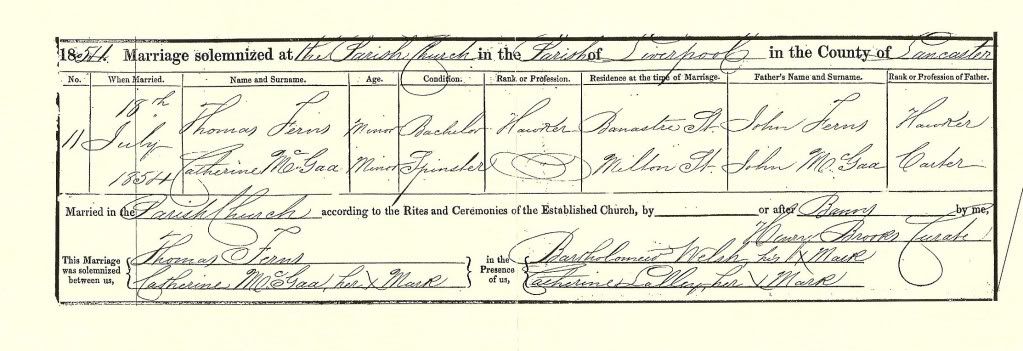 1854. Marriage solemnized at the Parish Church in the Parish of Liverpool in the County of Lancaster
No. When Married. Name and Surname. Age. Condition. Rank or Profession. Residence at the time of Marriage. Father's Name and Surname. Rank or Profession of Father.
11 18th July 1854 Thomas Ferns Minor Bachelor Hawker Banastre St. John Ferns Hawker
Catherine McGaa Minor Spinster Milton St. John McGaa Carter
Married in the Parish Church according to the Rites and Ceremonies of the Established Church, by or after Banns by me,
Henry Brooks Curate
This Marriage was solemnized between us, Thomas Ferns in the Presence of us, Bartholomew Welsh, his X Mark
Catherine McGaa, her X Mark Catherine Lalley, her X Mark